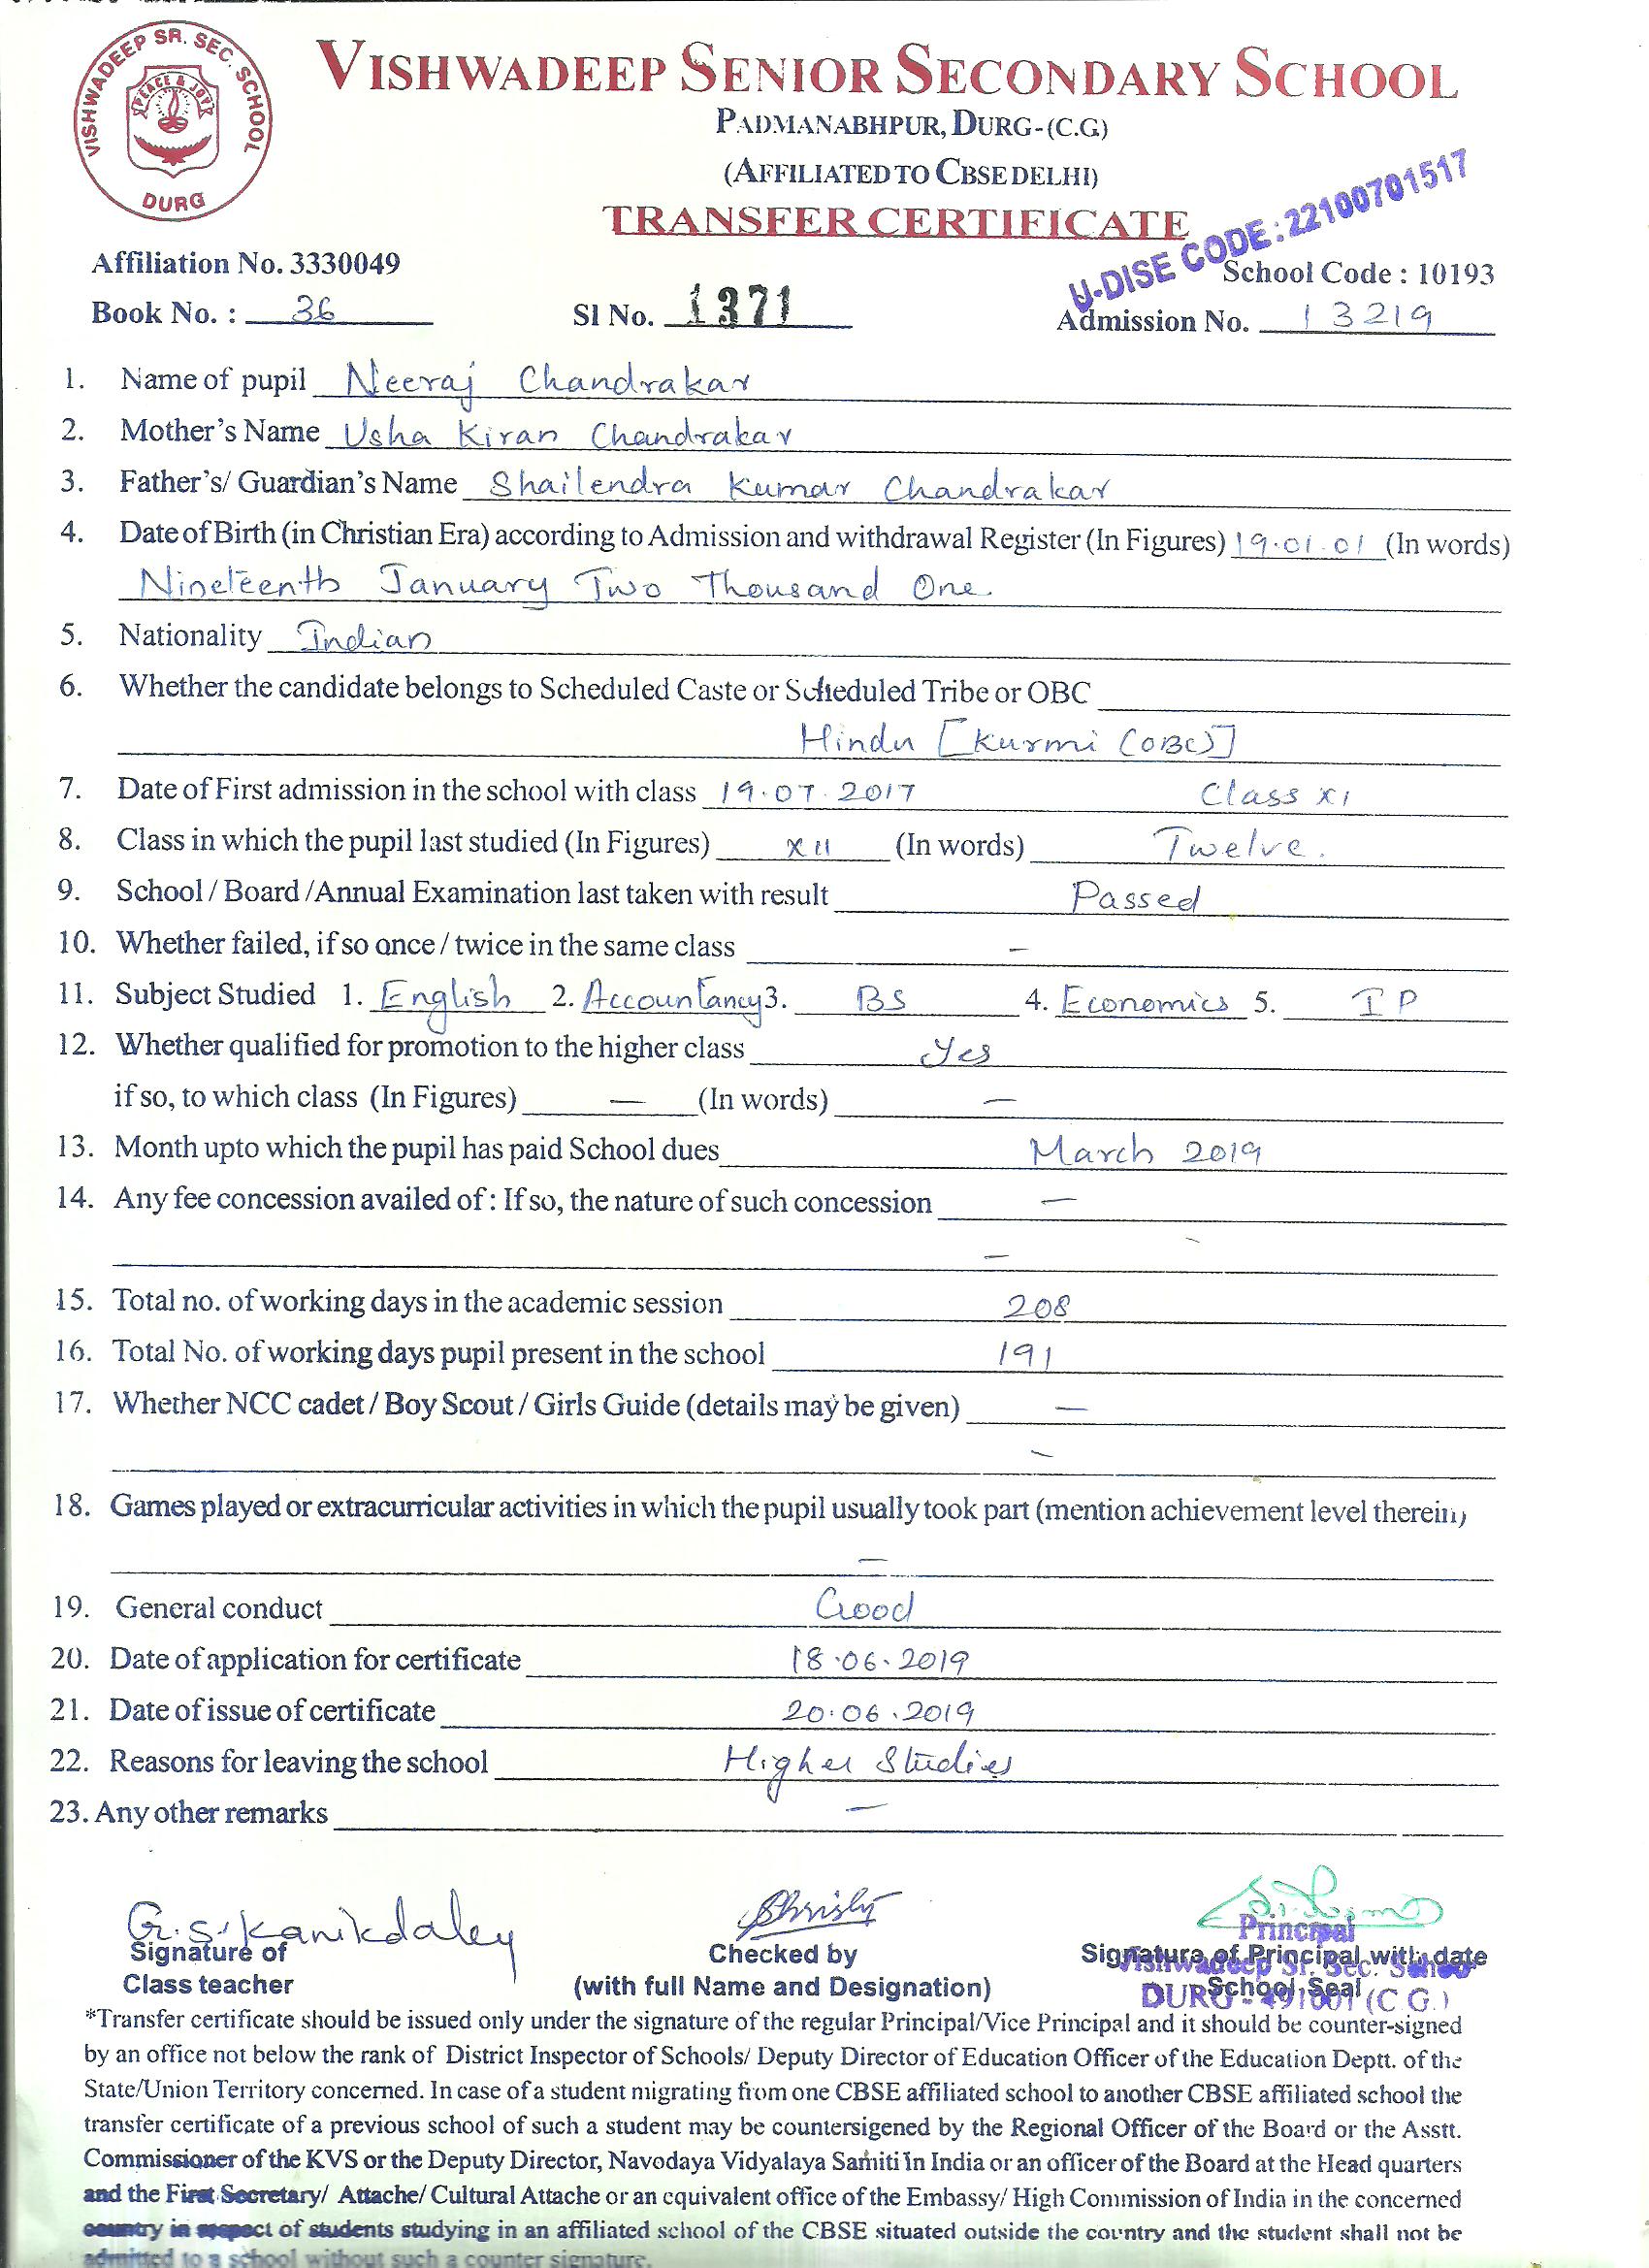 VISHWADEEP SR. SEC. SCHOOL
PEACE & JOY
DURG
VISHWADEEP SENIOR SECONDARY SCHOOL
PADMANABHPUR, DURG-(C.G)
(AFFILIATED TO CBSE DELHI)
TRANSFER CERTIFICATE
U-DISE CODE: 22100701517
Affiliation No. 3330049 School Code : 10193
Book No. : 36 Sl No. 1371 Admission No. 13219
1. Name of pupil Neeraj Chandrakar
2. Mother's Name Usha Kiran Chandrakar
3. Father's/ Guardian's Name Shailendra Kumar Chandrakar
4. Date of Birth (in Christian Era) according to Admission and withdrawal Register (In Figures) 19.01.01 (In words)
Nineteenth January Two Thousand One.
5. Nationality Indian
6. Whether the candidate belongs to Scheduled Caste or Scheduled Tribe or OBC
Hindu [Kurmi (OBC)]
7. Date of First admission in the school with class 19.07.2017 Class XI
8. Class in which the pupil last studied (In Figures) XII (In words) Twelve.
9. School / Board /Annual Examination last taken with result Passed
10. Whether failed, if so once / twice in the same class —
11. Subject Studied 1. English 2. Accountancy 3. BS 4. Economics 5. IP
12. Whether qualified for promotion to the higher class Yes
if so, to which class (In Figures) — (In words) —
13. Month upto which the pupil has paid School dues March 2019
14. Any fee concession availed of : If so, the nature of such concession —
—
15. Total no. of working days in the academic session 208
16. Total No. of working days pupil present in the school 191
17. Whether NCC cadet / Boy Scout / Girls Guide (details may be given) —
—
18. Games played or extracurricular activities in which the pupil usually took part (mention achievement level therein)
—
19. General conduct Good
20. Date of application for certificate 18.06.2019
21. Date of issue of certificate 20.06.2019
22. Reasons for leaving the school Higher Studies
23. Any other remarks —
G.S. Kanikdaley
Principal
Signature of Checked by Signature of Principal with date
Vishwadeep Sr. Sec. School
Class teacher (with full Name and Designation) School Seal
DURG - 491001 (C.G.)
*Transfer certificate should be issued only under the signature of the regular Principal/Vice Principal and it should be counter-signed
by an office not below the rank of District Inspector of Schools/ Deputy Director of Education Officer of the Education Deptt. of the
State/Union Territory concerned. In case of a student migrating from one CBSE affiliated school to another CBSE affiliated school the
transfer certificate of a previous school of such a student may be countersigened by the Regional Officer of the Board or the Asstt.
Commissioner of the KVS or the Deputy Director, Navodaya Vidyalaya Samiti in India or an officer of the Board at the Head quarters
and the First Secretary/ Attache/ Cultural Attache or an equivalent office of the Embassy/ High Commission of India in the concerned
country in respect of students studying in an affiliated school of the CBSE situated outside the country and the student shall not be
admitted to a school without such a counter signature.